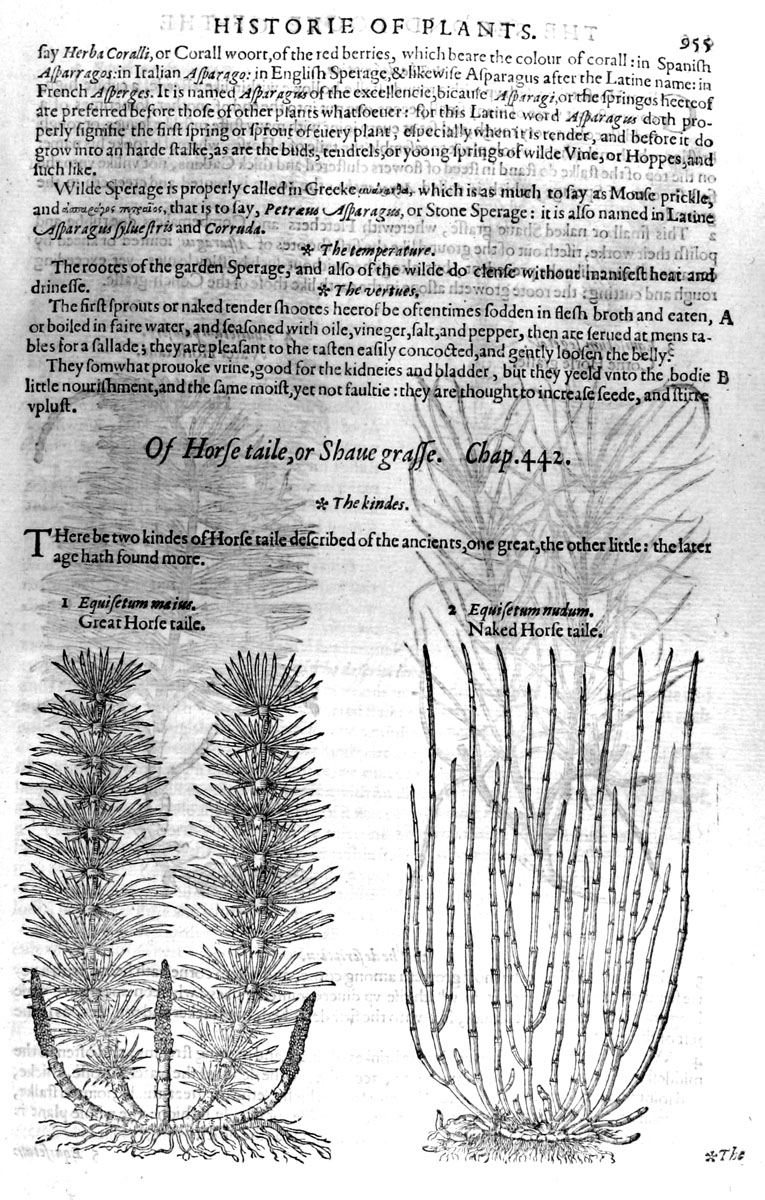 HISTORIE OF PLANTS. 955
ſay Herba Coralli, or Corall woort, of the red berries, which beare the colour of corall: in Spaniſh
Aſparragos: in Italian Aſparago: in Engliſh Sperage, & likewiſe Aſparagus after the Latine name: in
French Aſperges. It is named Aſparagus of the excellencie, bicauſe Aſparagi, or the ſpringes heereof
are preferred before thoſe of other plants whatſoeuer: for this Latine word Aſparagus doth pro-
perly ſignifie the firſt ſpring or ſprout of euery plant, eſpecially when it is tender, and before it do
grow into an harde ſtalke, as are the buds, tendrels, or yoong ſprings of wilde Vine, or Hoppes, and
ſuch like.
Wilde Sperage is properly called in Greeke which is as much to ſay as Mouſe prickle,
and that is to ſay, Petræus Aſparagus, or Stone Sperage: it is alſo named in Latine
Aſparagus ſylueſtris and Corruda.
✻ The temperature.
The rootes of the garden Sperage, and alſo of the wilde do clenſe without manifeſt heat and
drineſſe.
✻ The vertues.
The firſt ſprouts or naked tender ſhootes heerof be oftentimes ſodden in fleſh broth and eaten, A
or boiled in faire water, and ſeaſoned with oile, vineger, ſalt, and pepper, then are ſerued at mens ta-
bles for a ſallade; they are pleaſant to the taſte, eaſily concocted, and gently looſen the belly.
They ſomwhat prouoke vrine, good for the kidneies and bladder, but they yeeld vnto the bodie B
little nouriſhment, and the ſame moiſt, yet not faultie: they are thought to increaſe ſeede, and ſtirre
vp luſt.
Of Horſe taile, or Shaue graſſe. Chap. 442.
✻ The kindes.
THere be two kindes of Horſe taile deſcribed of the ancients, one great, the other little: the later
age hath found more.
1 Equiſetum maius.
Great Horſe taile.
2 Equiſetum nudum.
Naked Horſe taile.
✻ The